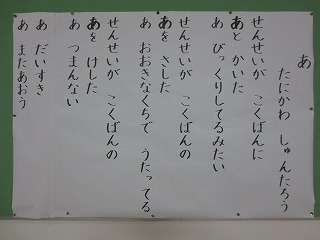 あ
たにかわ しゅんたろう
せんせいが こくばんに
あと かいた
あ びっくりしてるみたい
せんせいが こくばんの
あを さした
あ おおきなくちで うたってる
せんせいが こくばんの
あを けした
あ つまんない
あ だいすき
あ またあおう